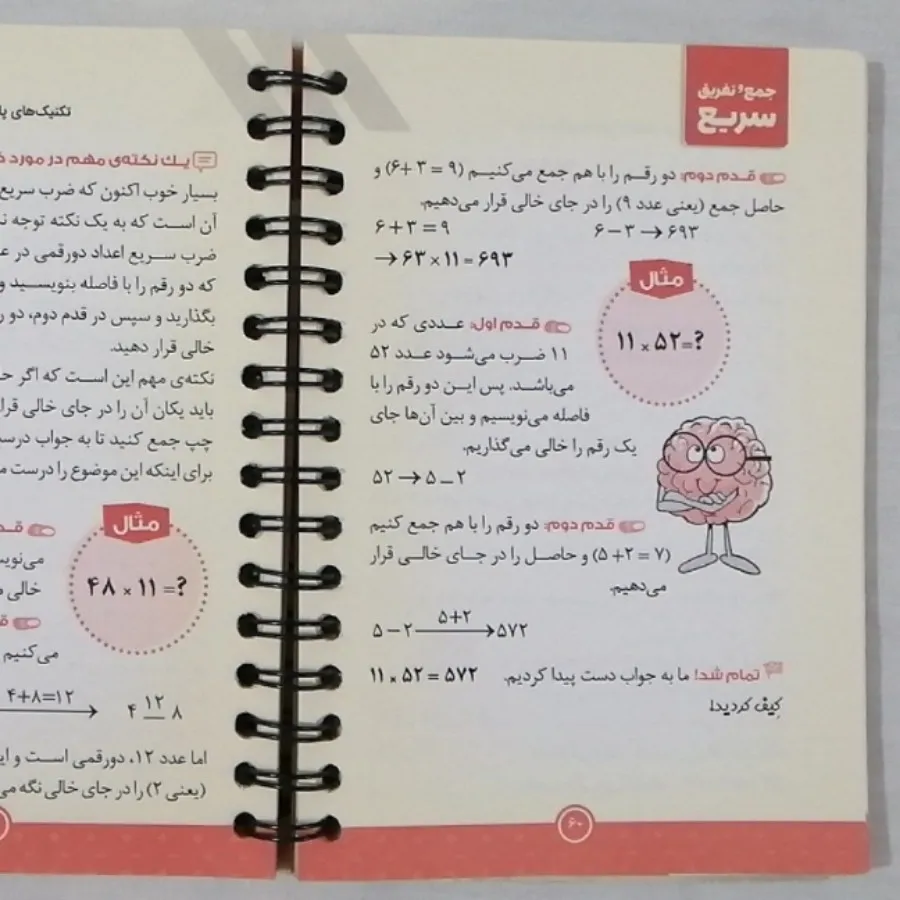 جمع و تفریق
سریع
قدم دوم: دو رقم را با هم جمع می‌کنیم (۶+۳=۹) و
حاصل جمع (یعنی عدد ۹) را در جای خالی قرار می‌دهیم.
۶+۳=۹
۶-۳→۶۹۳
→۶۳×۱۱=۶۹۳
مثال
۱۱×۵۲=?
قدم اول: عددی که در
۱۱ ضرب می‌شود عدد ۵۲
می‌باشد. پس این دو رقم را با
فاصله می‌نویسیم و بین آن‌ها جای
یک رقم را خالی می‌گذاریم.
۵۲→۵_۲
قدم دوم: دو رقم را با هم جمع کنیم
(۵+۲=۷) و حاصل را در جای خالی قرار
می‌دهیم.
۵+۲
۵-۲→۵۷۲
تمام شد! ما به جواب دست پیدا کردیم. ۱۱×۵۲=۵۷۲
کیف کردید!
۶۰
تکنیک‌های
یک نکته‌ی مهم در مورد
بسیار خوب اکنون که ضرب سریع
آن است که به یک نکته توجه
ضرب سریع اعداد دورقمی در
که دو رقم را با فاصله بنویسید و
بگذارید و سپس در قدم دوم، دو
خالی قرار دهید.
نکته‌ی مهم این است که اگر
باید یکان آن را در جای خالی
چپ جمع کنید تا به جواب
برای اینکه این موضوع را درست
مثال
۴۸×۱۱=?
خالی
می‌کنیم
۴+۸=۱۲
→ ۴ ۱۲ ۸
اما عدد ۱۲، دورقمی است و
(یعنی ۲) را در جای خالی نگه